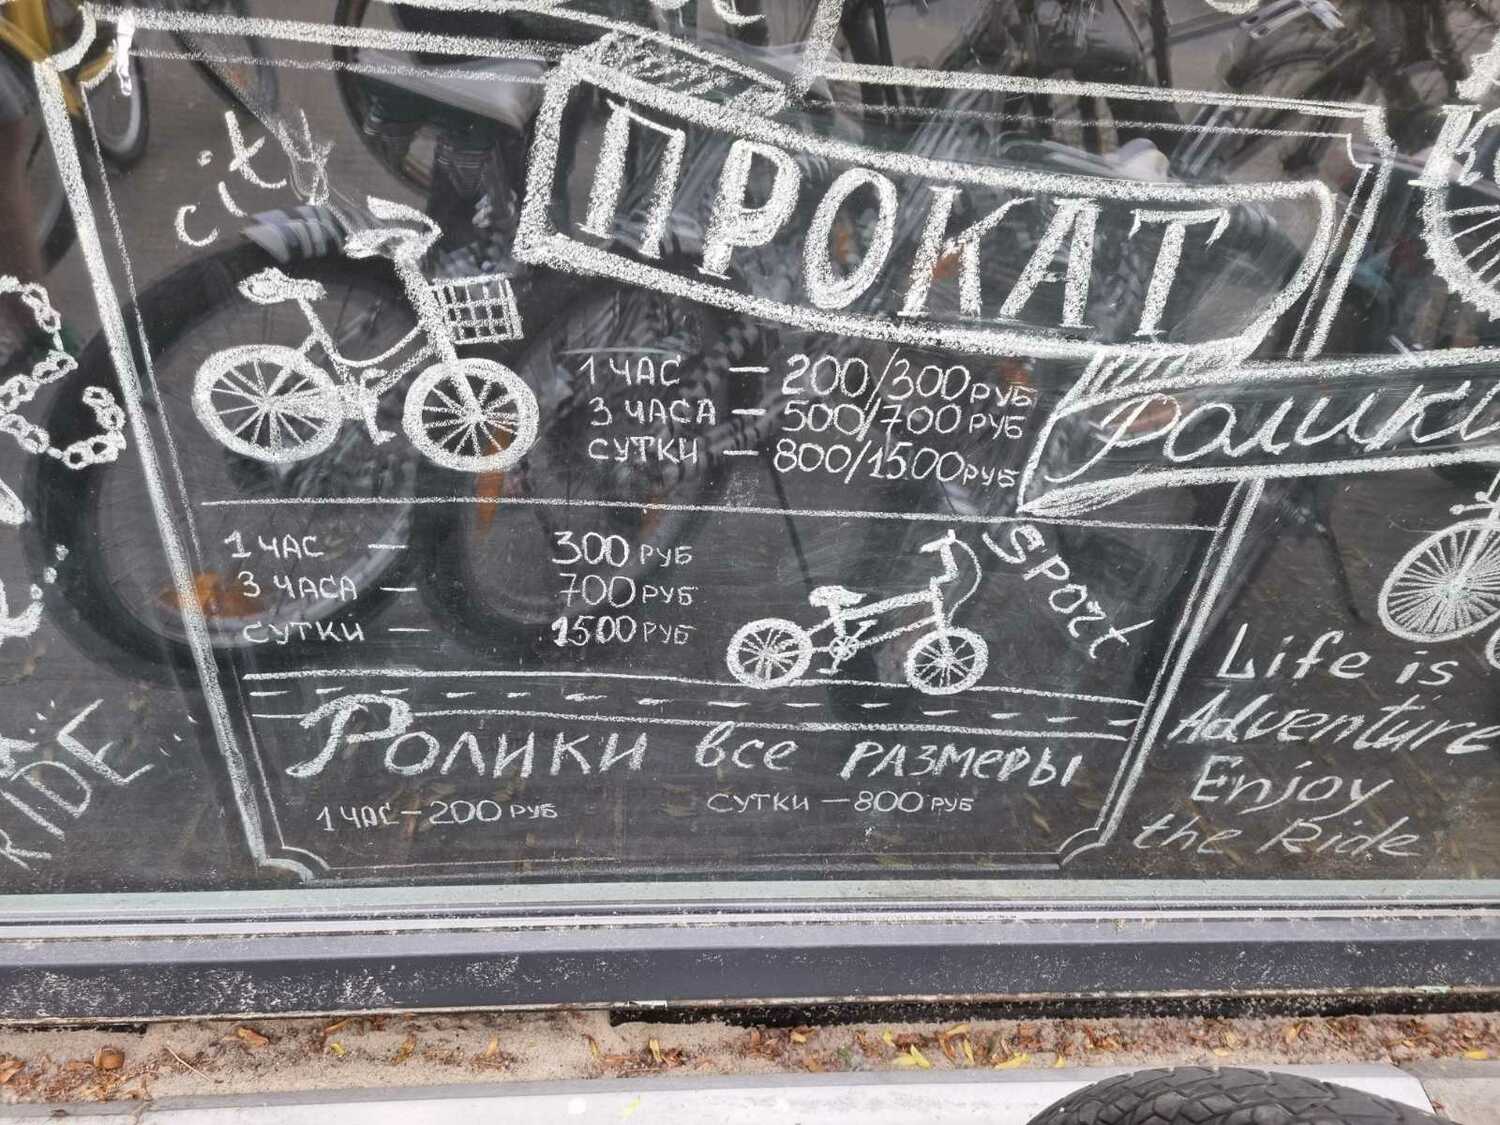 city
ПРОКАТ
1 ЧАС — 200/300 РУБ
3 ЧАСА — 500/700 РУБ
СУТКИ — 800/1500 РУБ
Ролики
1 ЧАС — 300 РУБ
3 ЧАСА — 700 РУБ
СУТКИ — 1500 РУБ
SPORT
Ролики все размеры
1 ЧАС — 200 РУБ СУТКИ — 800 РУБ
Life is
Adventure
Enjoy
the Ride
RIDE